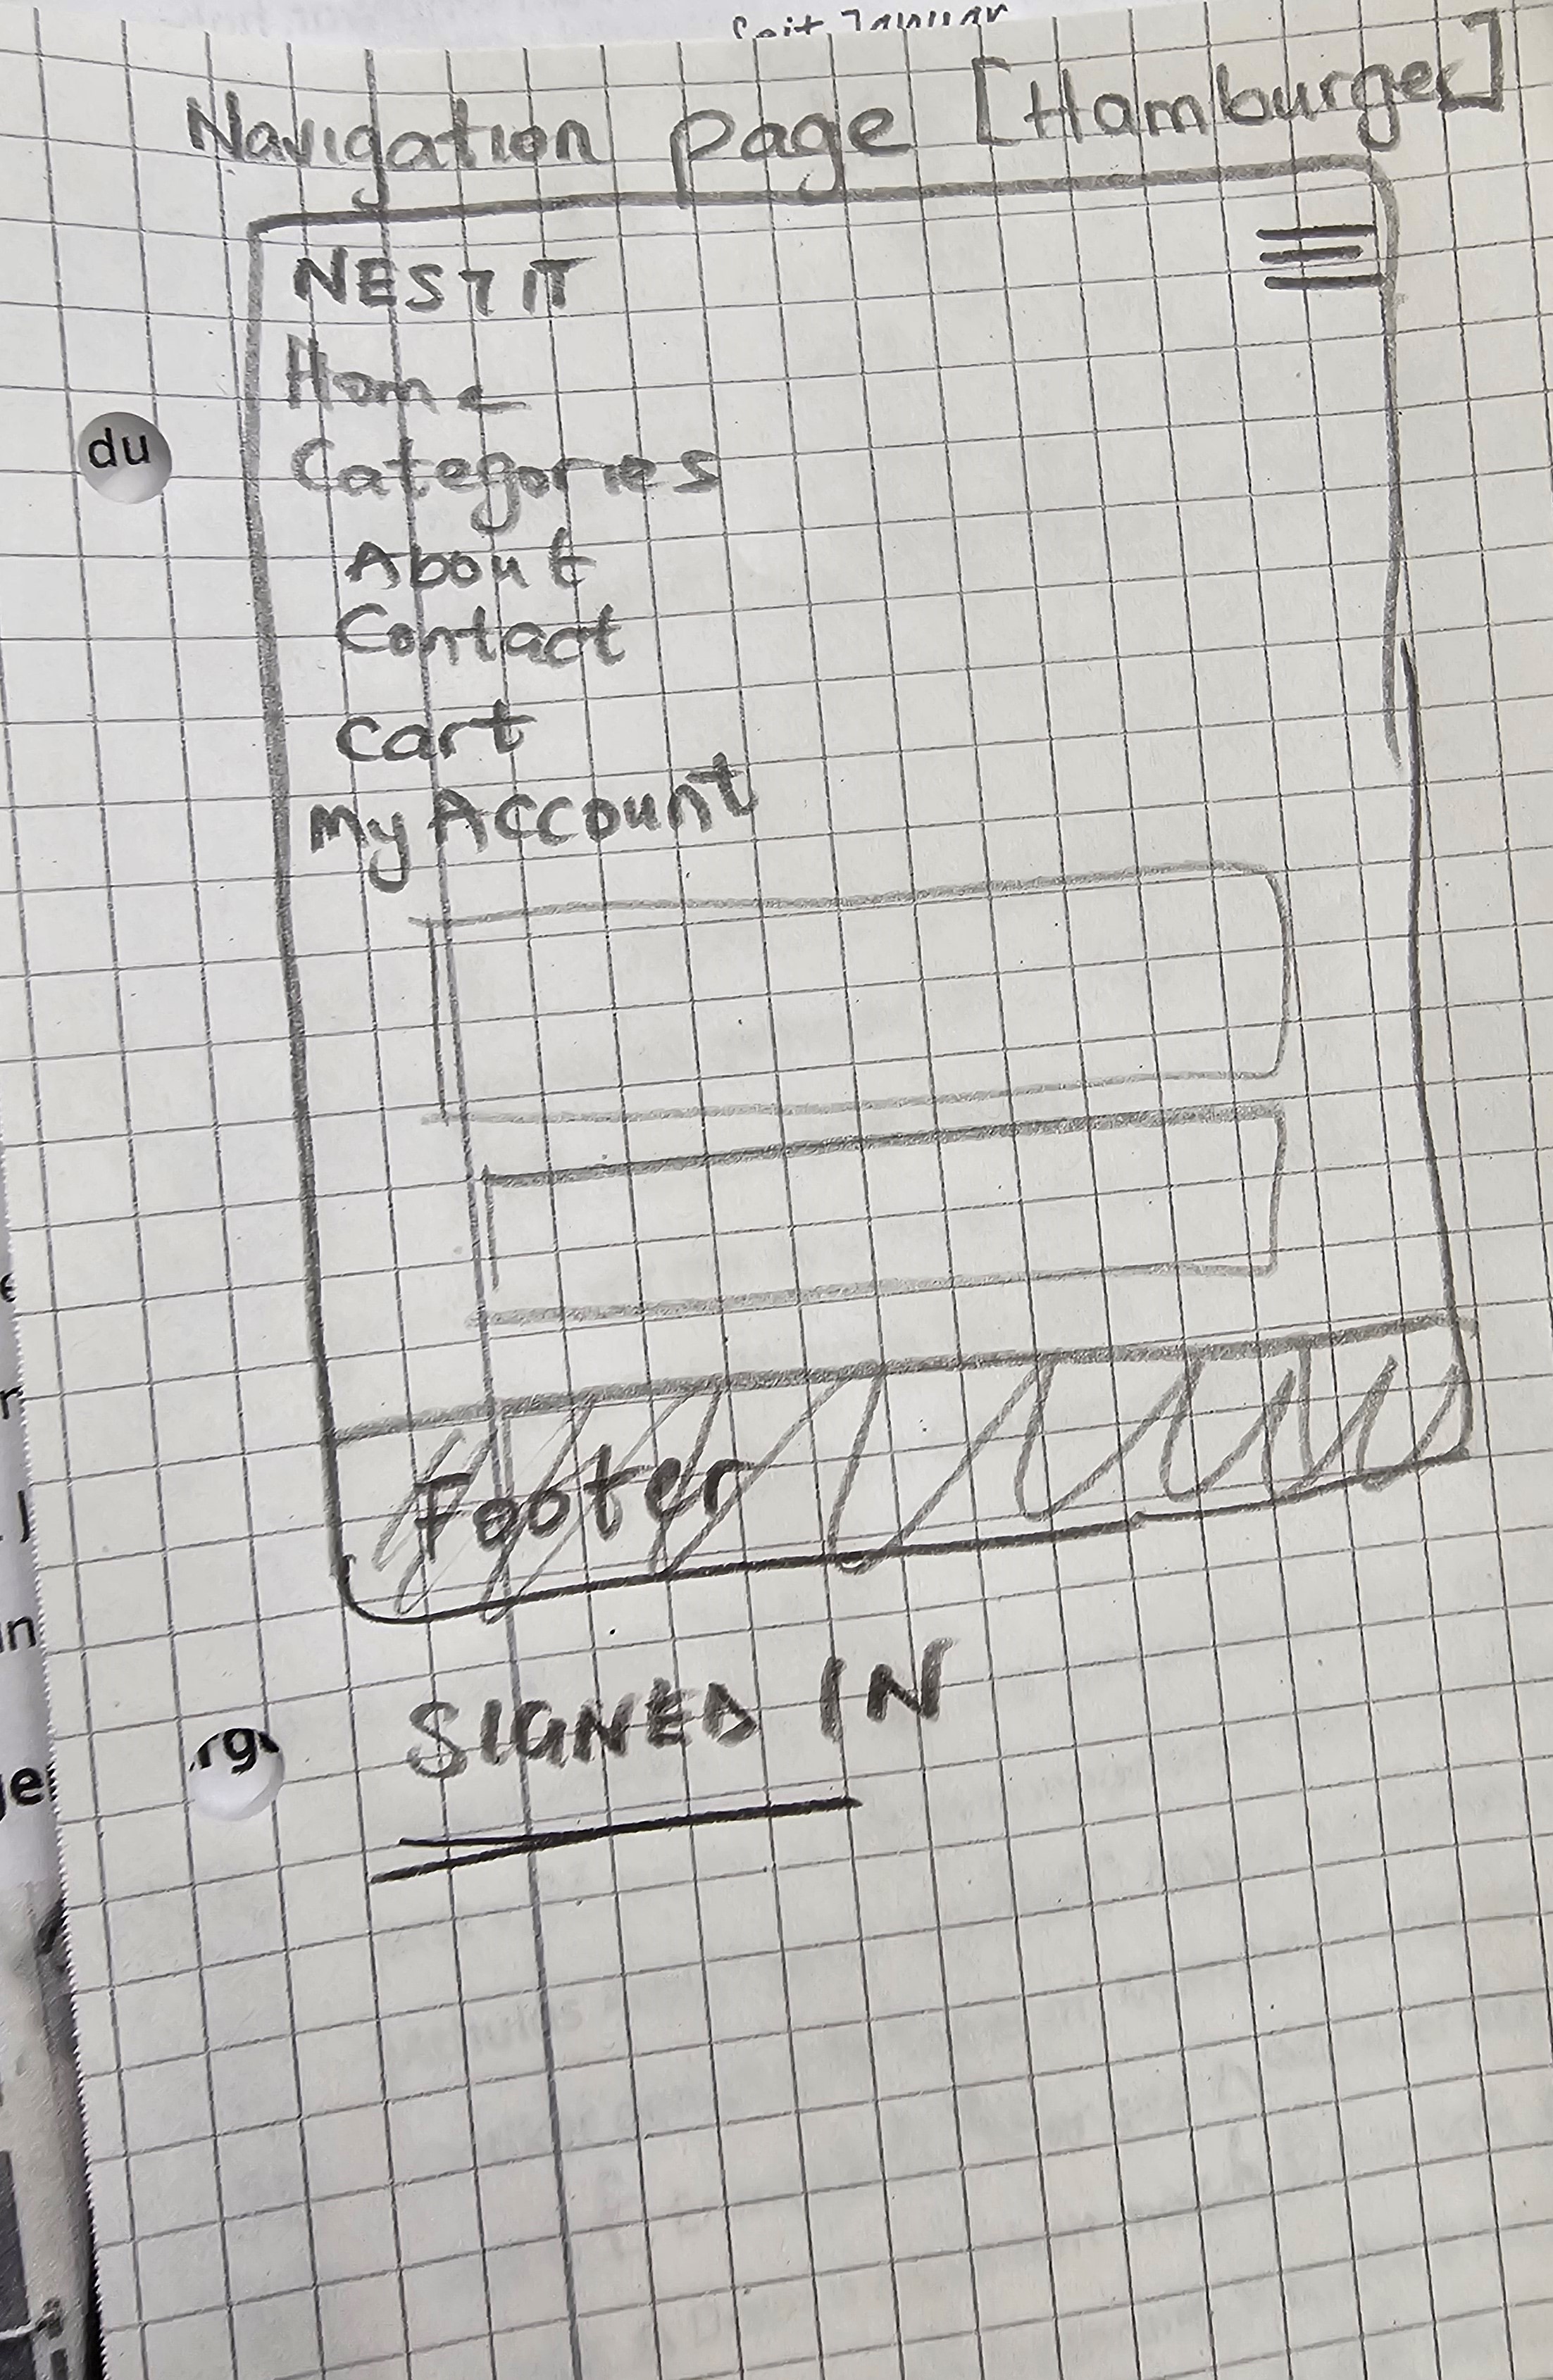 Navigation page [Hamburger]
NEST IT
Home
Categories
About
Contact
Cart
My Account
Footer
SIGNED IN
du